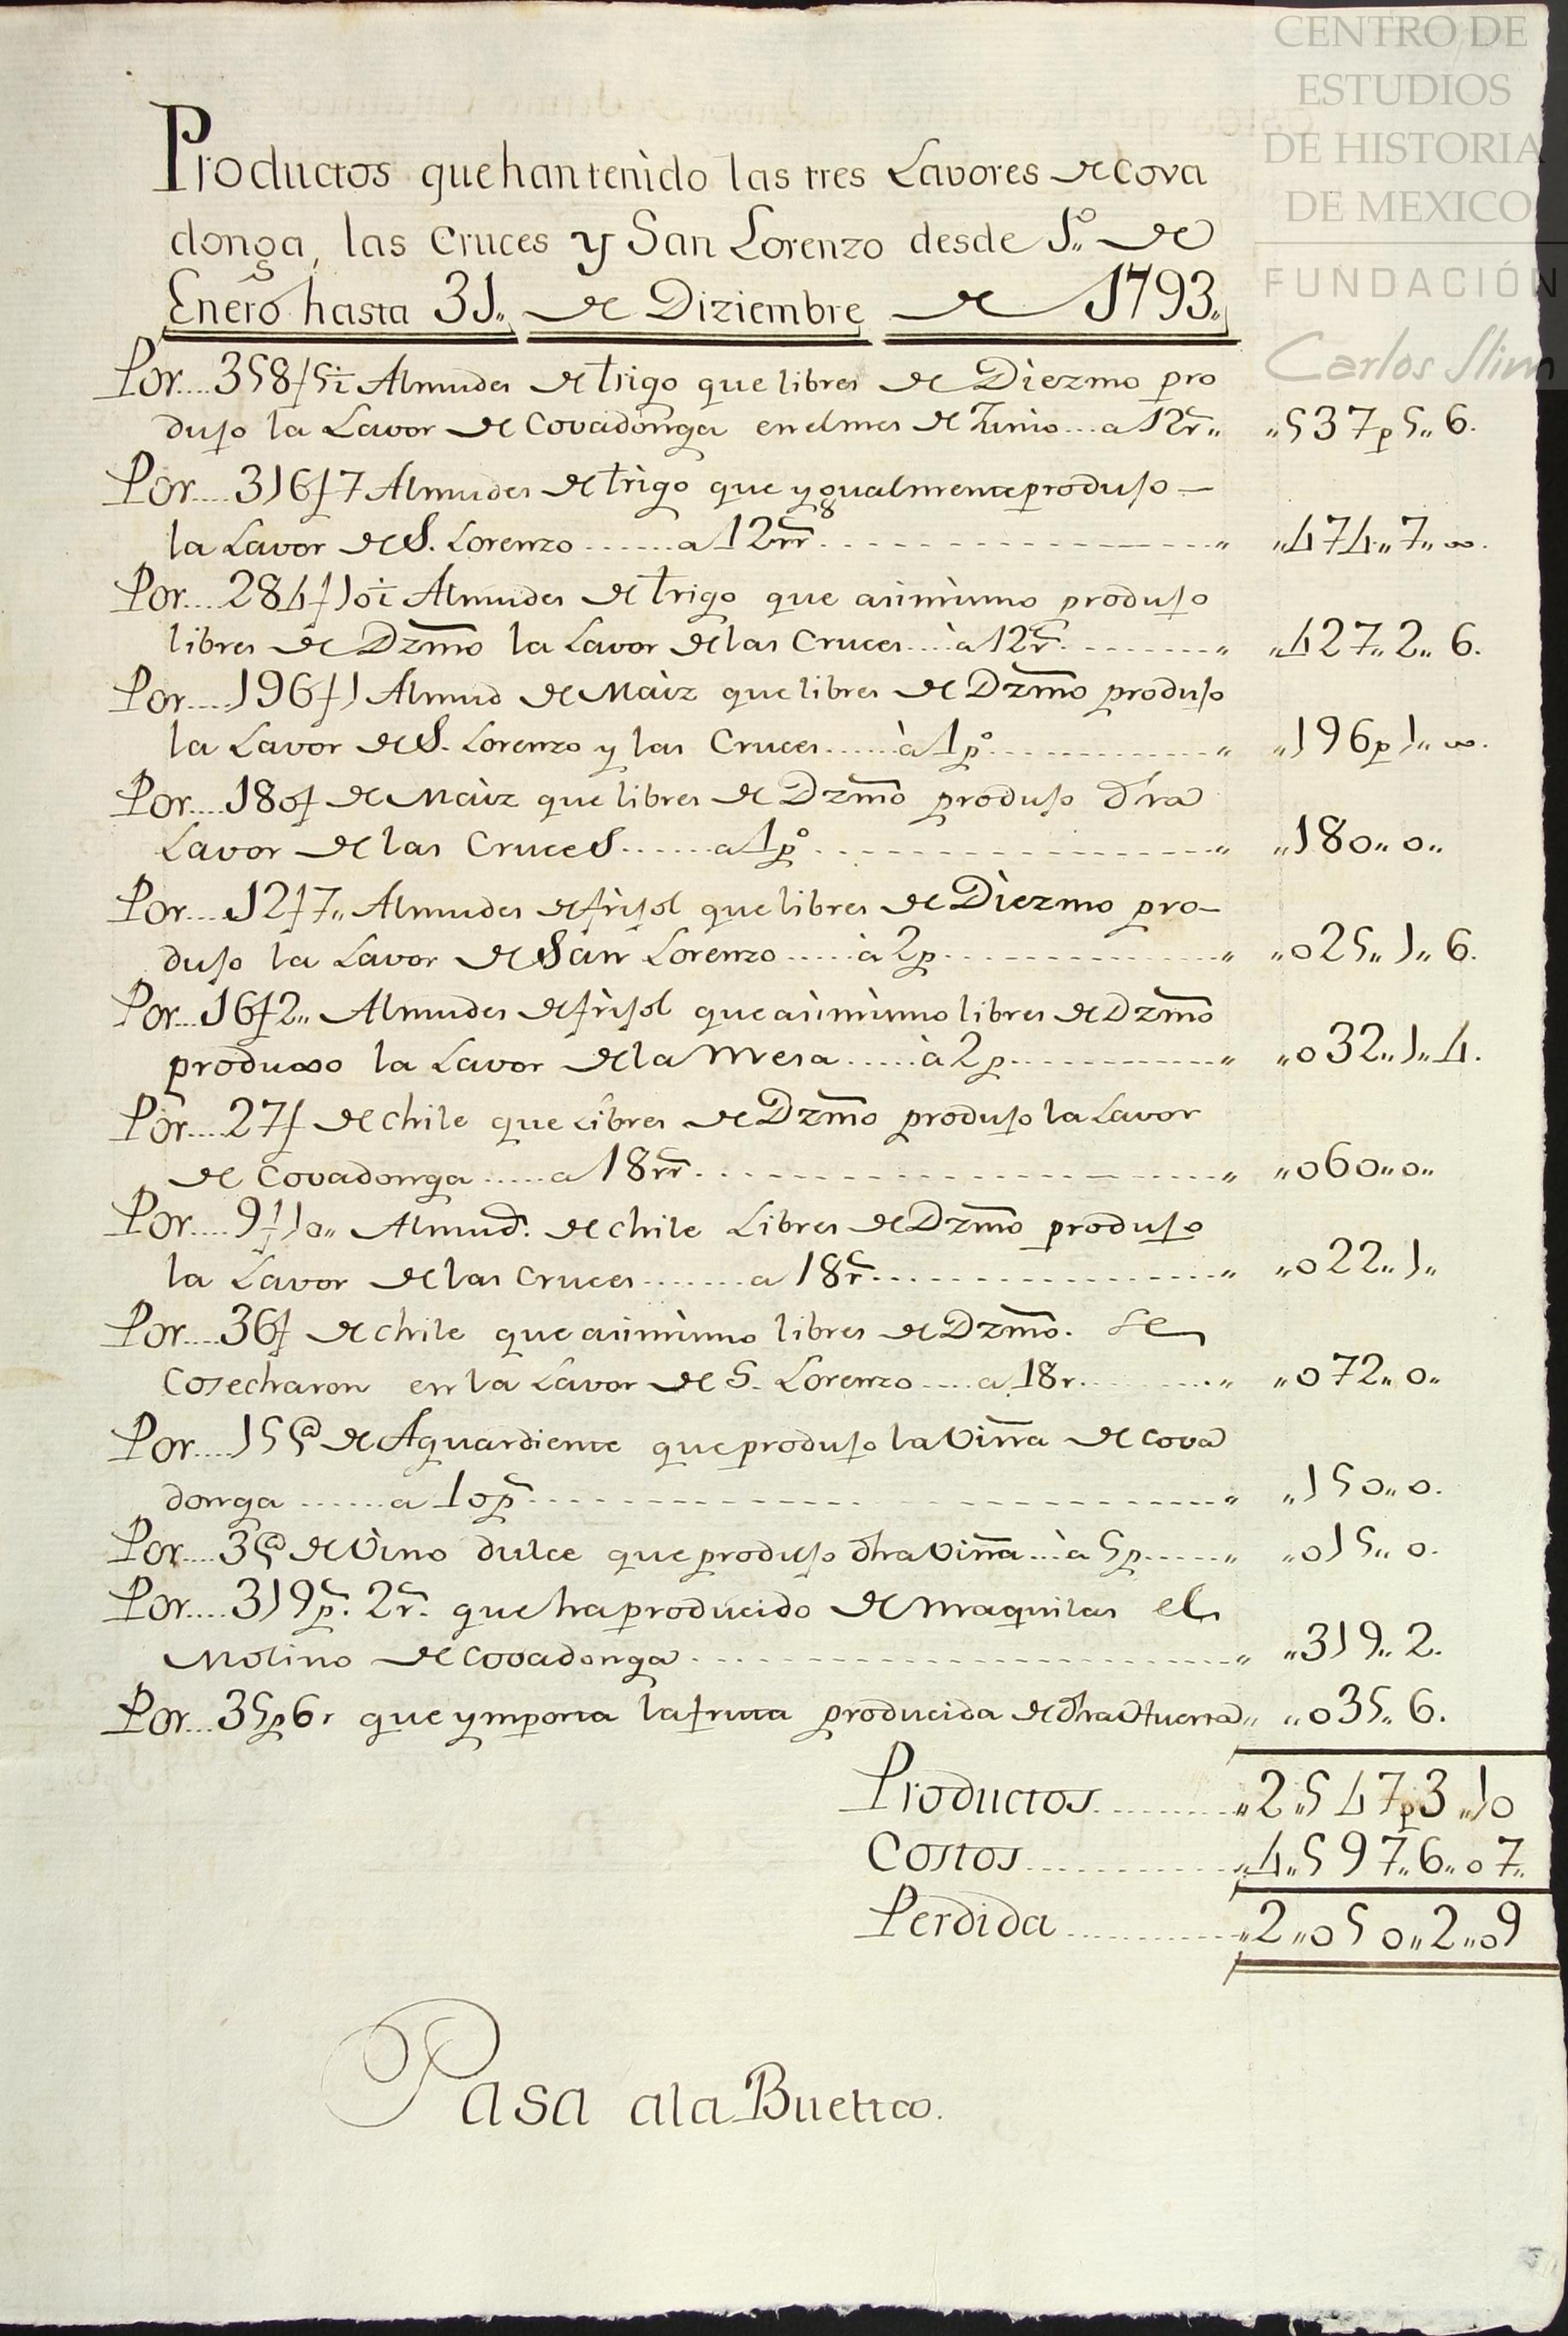 CENTRO DE
ESTUDIOS
DE HISTORIA
DE MEXICO
FUNDACIÓN
Carlos Slim
Productos que han tenido las tres Lavores de Cova
donga, las Cruces y San Lorenzo desde 1º.. de
Enero hasta 31.. de Diziembre de 1793..
Por....358f 5½ Almudes de trigo que libres de Diezmo pro
dujo la Lavor de Covadonga en el mes de Junio...a 12r.. „537p5„6.
Por....316f7 Almudes de trigo que ygualmente produjo—
la Lavor de S. Lorenzo.......a 12rr. „474„7„∞.
Por....284f10½ Almudes de trigo que asimismo produjo
libres de Dzmo la Lavor de las Cruces....à 12r. „427„2„6.
Por....196f1 Almud de Maiz que libres de Dzmo produjo
la Lavor de S. Lorenzo y las Cruces......à 1pº „196p1„∞.
Por....180f de Maiz que libres de Dzmo produjo dha
Lavor de las Cruces.......a 1pº „180„0„
Por....12f7„ Almudes de frijol que libres de Diezmo pro-
dujo la Lavor de San Lorenzo.....à 2p „025„1„6.
Por...16f2„ Almudes de frijol que asimismo libres de Dzmo
produxo la Lavor de la Mesa.....à 2p „032„1„4.
Por....27f de chile que Libres de Dzmo produjo la Lavor
de Covadonga.....a 18rr. „060„0„
Por....9f10„ Almud. de chile Libres de Dzmo produjo
la Lavor de las Cruces........a 18r. „022„1„
Por....36f de chile que asimismo libres de Dzmo. se
Cosecharon en la Lavor de S. Lorenzo....a 18r. „072„0„
Por....15@ de Aguardiente que produjo la Viña de Cova
donga.......a 10p „150„0.
Por....3@ de Vino dulce que produjo dha Viña...à 5p „015„0.
Por....319p. 2r. que ha producido de maquilas el
Molino de Covadonga „319„2.
Por...35p6r que ymporta la fruta producida de dha Huerta „035„6.
Productos „2„547p3„10
Costos „4„597„6„07„
Perdida „2„050„2„09
Pasa a la Buelta.